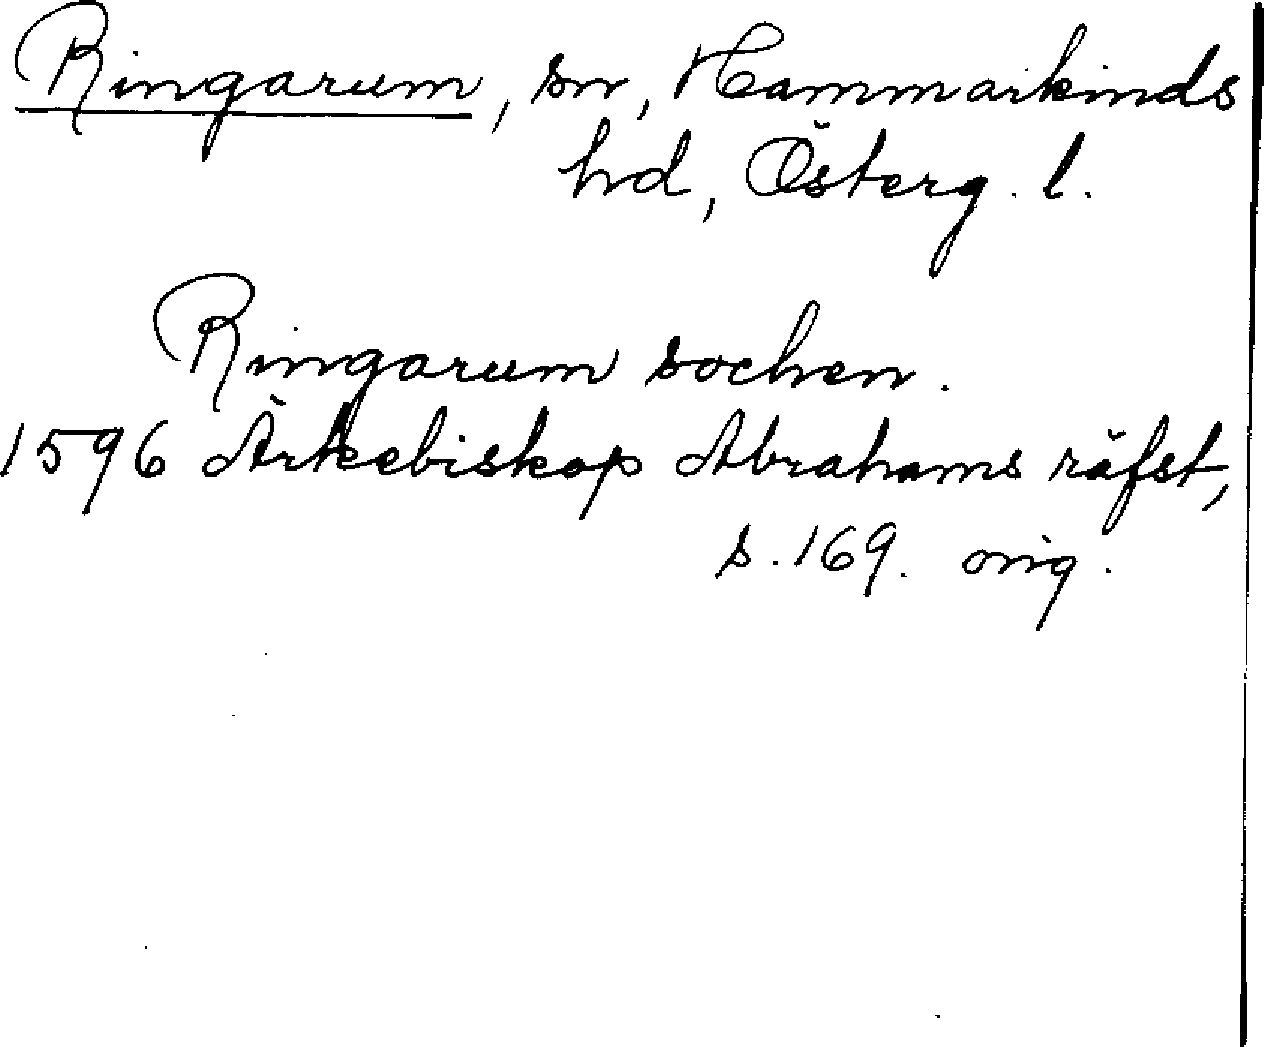 Ringarum, sn, Hammarkinds
hd, Österg. l.
Ringarum sochen.
1596 Ärkebiskop Abrahams räfst,
s. 169. orig.